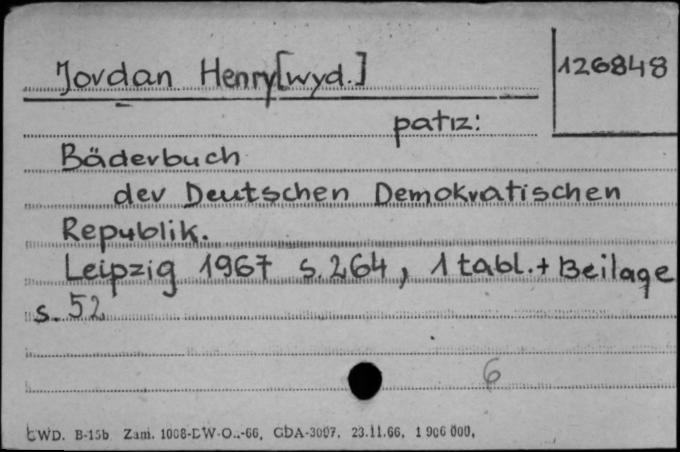 Jordan Henry[wyd.]
126848
patrz:
Bäderbuch
der Deutschen Demokratischen
Republik.
Leipzig 1967 s.264, 1 tabl.+ Beilage
s. 52
6
CWD. B-15b Zam. 1008-DW-O..-66, GDA-3097, 23.11.66, 1 906 000,